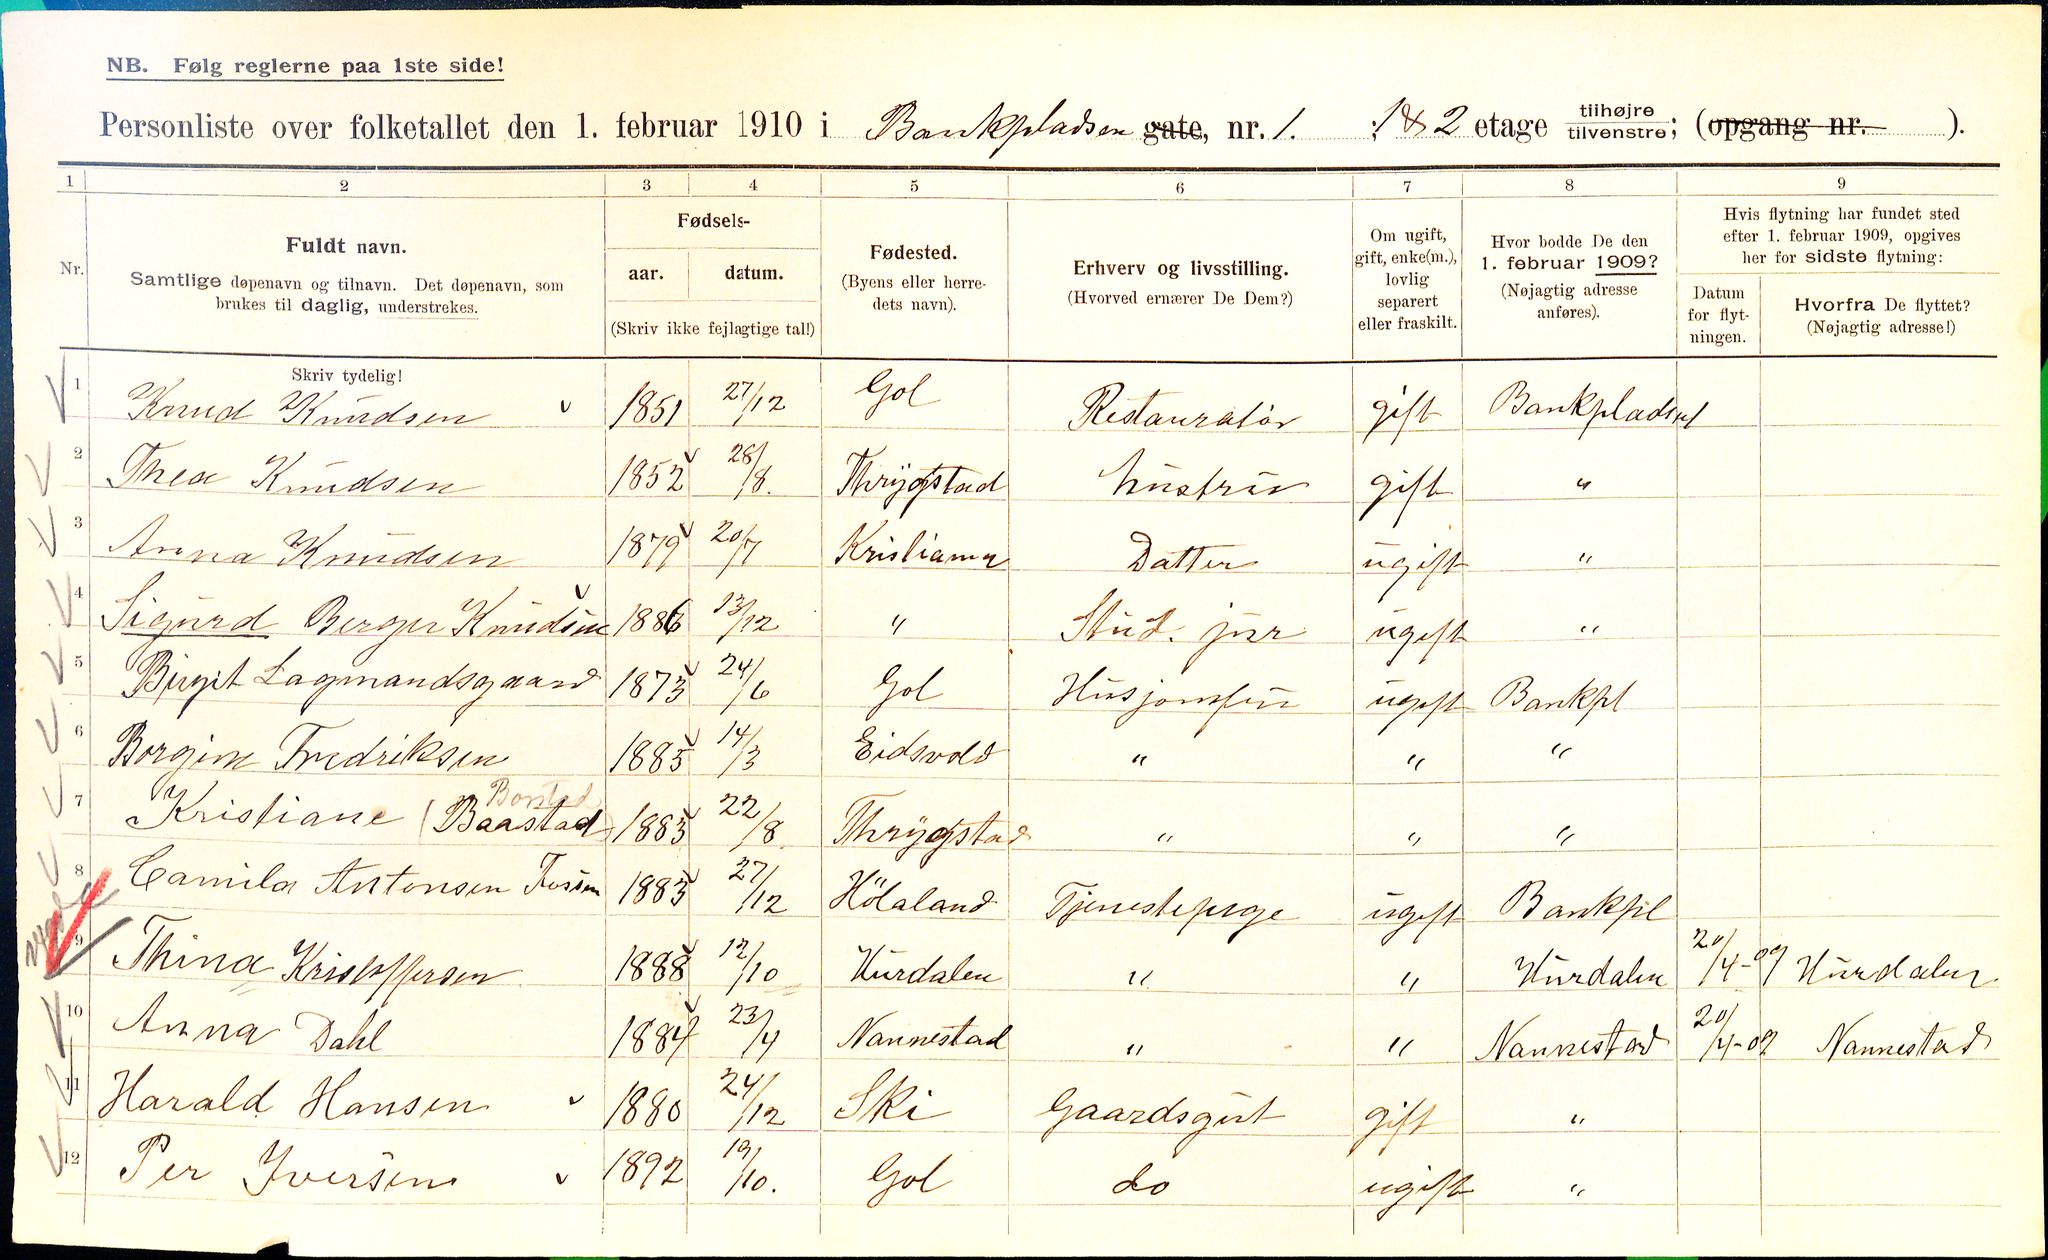 NB. Følg reglerne paa 1ste side!
Personliste over folketallet den 1. februar 1910 i Bankpladsen gate, nr. 1. ; 1 & 2 etage tilhøjre tilvenstre; (opgang nr. ).
1 2 3 4 5 6 7 8 9
Nr.
Fuldt navn.
Samtlige døpenavn og tilnavn. Det døpenavn, som
brukes til daglig, understrekes.
Fødsels-
aar. datum.
(Skriv ikke fejlagtige tal!)
Fødested.
(Byens eller herre-
dets navn).
Erhverv og livsstilling.
(Hvorved ernærer De Dem?)
Om ugift,
gift, enke(m.),
lovlig
separert
eller fraskilt.
Hvor bodde De den
1. februar 1909?
(Nøjagtig adresse
anføres).
Hvis flytning har fundet sted
efter 1. februar 1909, opgives
her for sidste flytning:
Datum
for flyt-
ningen.
Hvorfra De flyttet?
(Nøjagtig adresse!)
Skriv tydelig!
1 Knud Knudsen 1851 27/12 Gol Restauratör gift Bankpladsen
2 Thea Knudsen 1852 28/8. Thrygstad hustru gift "
3 Anna Knudsen 1879 20/7 Kristiania Datter ugift "
4 Sigurd Berger Knudsen 1886 13/12 " Stud. jur ugift "
5 Birgit Lagmandsgaard 1873 24/6 Gol Husjomfru ugift Bankpl
6 Borgine Fredriksen 1885 14/3 Eidsvold " " "
7 Kristiane (Baastad) 1883 22/8. Thrygstad " " "
8 Camila Antonsen 1883 27/12 Hölaland Tjenestepige ugift Bankpl
9 Thina Kristoffersen 1888 12/10 Hurdalen " " Hurdalen 20/4-09 Hurdalen
10 Anna Dahl 1884 23/4 Nannestad " " Nannestad 20/4-09 Nannestad
11 Harald Hansen 1880 24/12 Ski Gaardsgut gift "
12 Per Iversen 1892 19/10. Gol do ugift "